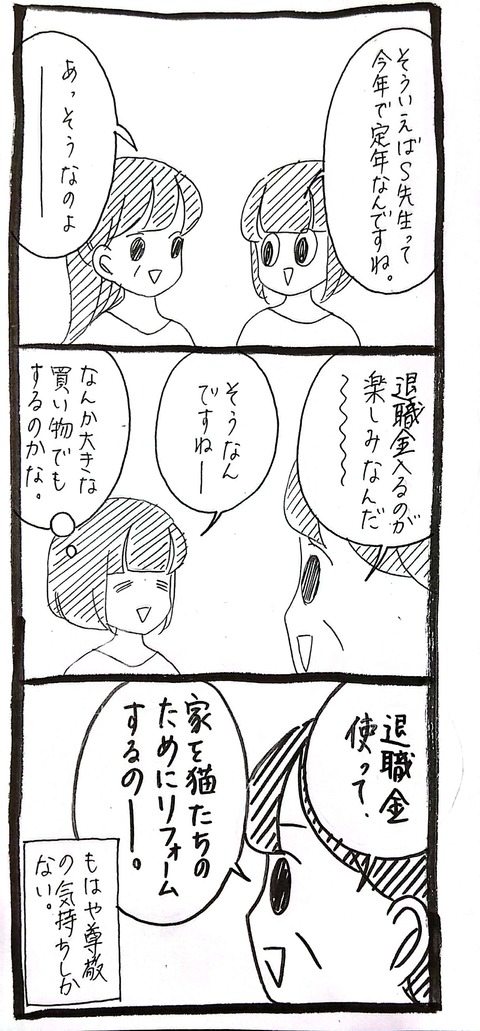 そういえばS先生って
今年で定年なんですね。
あっそうなのよ
――
退職金入るのが
楽しみなんだ
〜〜〜
そうなん
ですねー
なんか大きな
買い物でも
するのかな。
退職金
使って、
家を猫たちの
ためにリフォーム
するのー。
もはや尊敬
の気持ちしか
ない。